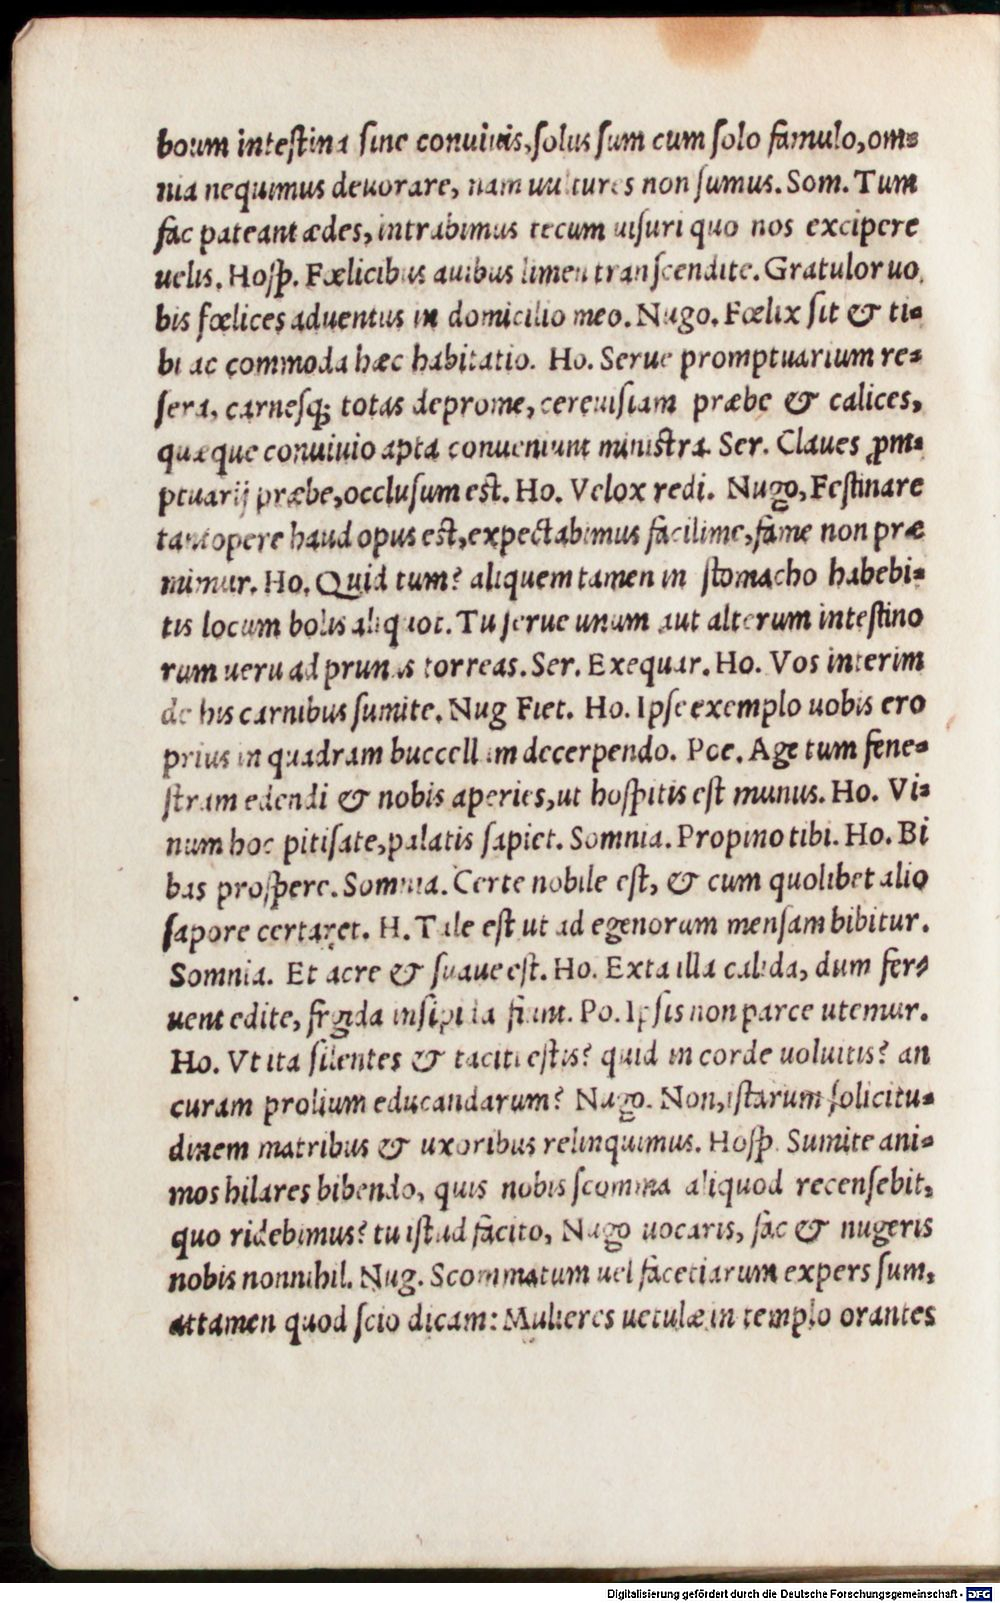 boum intestina sine conuiuis, solus sum cum solo famulo, om=
nia nequimus deuorare, nam uultures non sumus. Som. Tum
fac pateant ædes, intrabimus tecum uisuri quo nos excipere
uelis. Hosp. Fœlicibus auibus limen transcendite. Gratulor uo
bis fœlices aduentus in domicilio meo. Nugo. Fœlix sit & ti=
bi ac commoda hæc habitatio. Ho. Serue promptuarium re=
sera, carnesq; totas deprome, cereuisiam præbe & calices,
quæque conuiuio apta conueniunt ministra. Ser. Claues ꝓm=
ptuarij præbe, occlusum est. Ho. Velox redi. Nugo, Festinare
tantopere haud opus est, expectabimus facilime, fame non præ
mimur. Ho. Quid tum? aliquem tamen in stomacho habebi=
tis locum bolis aliquot. Tu serue unum aut alterum intestino
rum ueru ad prunas torreas. Ser. Exequar. Ho. Vos interim
de his carnibus sumite. Nug Fiet. Ho. Ipse exemplo uobis ero
prius in quadram buccellam decerpendo. Poe. Age tum fene=
stram edendi & nobis aperies, ut hospitis est munus. Ho. Vi=
num hoc pitisate, palatis sapiet. Somnia. Propino tibi. Ho. Bi
bas prospere. Somnia. Certe nobile est, & cum quolibet alio
sapore certaret. H. Tale est ut ad egenorum mensam bibitur.
Somnia. Et acre & suaue est. Ho. Exta illa calida, dum fer=
uent edite, frgida insipida fiunt. Po. Ipsis non parce utemur.
Ho. Vt ita silentes & taciti estis? quid in corde uoluitis? an
curam prolium educandarum? Nugo. Non, istarum solicitu=
dinem matribus & uxoribus relinquimus. Hosp. Sumite ani=
mos hilares bibendo, quis nobis scomma aliquod recensebit,
quo ridebimus? tu istud facito, Nugo uocaris, fac & nugeris
nobis nonnihil. Nug. Scommatum uel facetiarum expers sum,
attamen quod scio dicam: Mulieres uetulæ in templo orantes
Digitalisierung gefördert durch die Deutsche Forschungsgemeinschaft - DFG